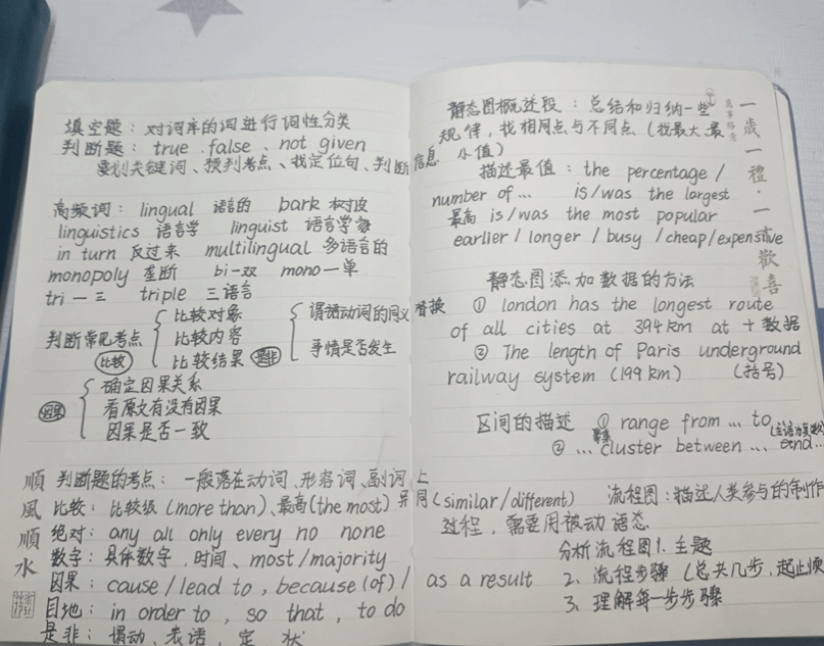 填空题：对词库的词进行词性分类
判断题：true . false 、not given
要划关键词、预判考点、找定位句、判断信息
高频词：lingual 语言的 bark 树皮
linguistics 语言学 linguist 语言学家
in turn 反过来 multilingual 多语言的
monopoly 垄断 bi-双 mono-单
tri-三 triple 三语言
判断常见考点
比较
比较对象
比较内容
比较结果
是非
谓语动词的同义替换
事情是否发生
因果
确定因果关系
看原文有没有因果
因果是否一致
判断题的考点：一般落在动词、形容词、副词上
比较：比较级(more than)、最高(the most) 异同(similar/different)
绝对：any all only every no none
数字：具体数字，时间、most/majority
因果：cause/lead to , because(of)/ as a result
目地：in order to , so that , to do
是非：情动、表语、定、状
順風順水
静态图概述段：总结和归纳一些
规律，找相同点与不同点（找最大、最
小值）
描述最值：the percentage/
number of... is/was the largest
最高 is/was the most popular
earlier / longer / busy /cheap/expensive
静态图添加数据的方法
① london has the longest route
of all cities at 394 km at + 数据
② The length of Paris underground
railway system (199 km) (括号)
区间的描述 ① range from ... to
② ... cluster between ... and...
流程图：描述人类参与的制作
过程，需要用被动语态
分析流程图1. 主题
2、流程步骤（总共几步，起止
3、理解每一步步骤
一歲一禮·一歡喜